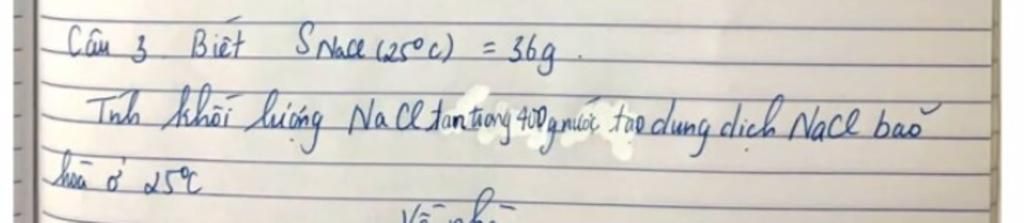 Câu 3 Biết S NaCl (25°C) = 36g.
Tính khối lượng NaCl tan trong 400g nước tạo dung dịch NaCl bão
hòa ở 25°C
Về nhà